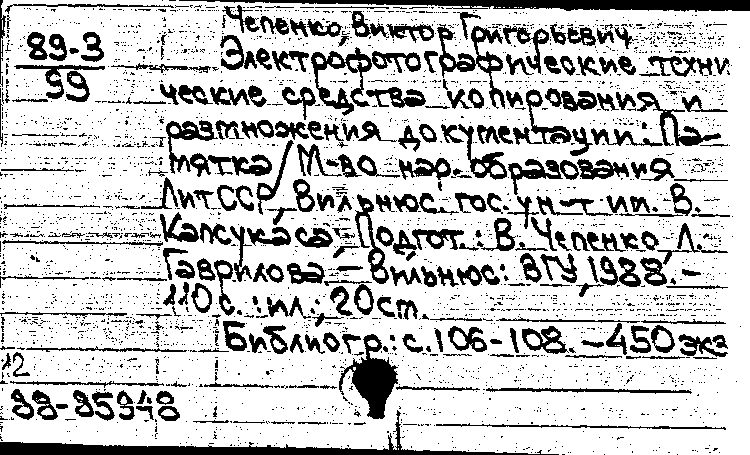 Чепенко, Виктор Григорьевич
89-3
99
Электрофотографические техни
ческие средства копирования и
размножения документации: Па-
мятка / М-во нар. образования
ЛитССР, Вильнюс. гос. ун-т им. В.
Капсукаса; Подгот.: В. Чепенко, Л.
Гаврилова. – Вильнюс: ВГУ, 1988. –
110 с. : ил.; 20 см.
Библиогр.: с. 106-108. – 450 экз
12
88-85948